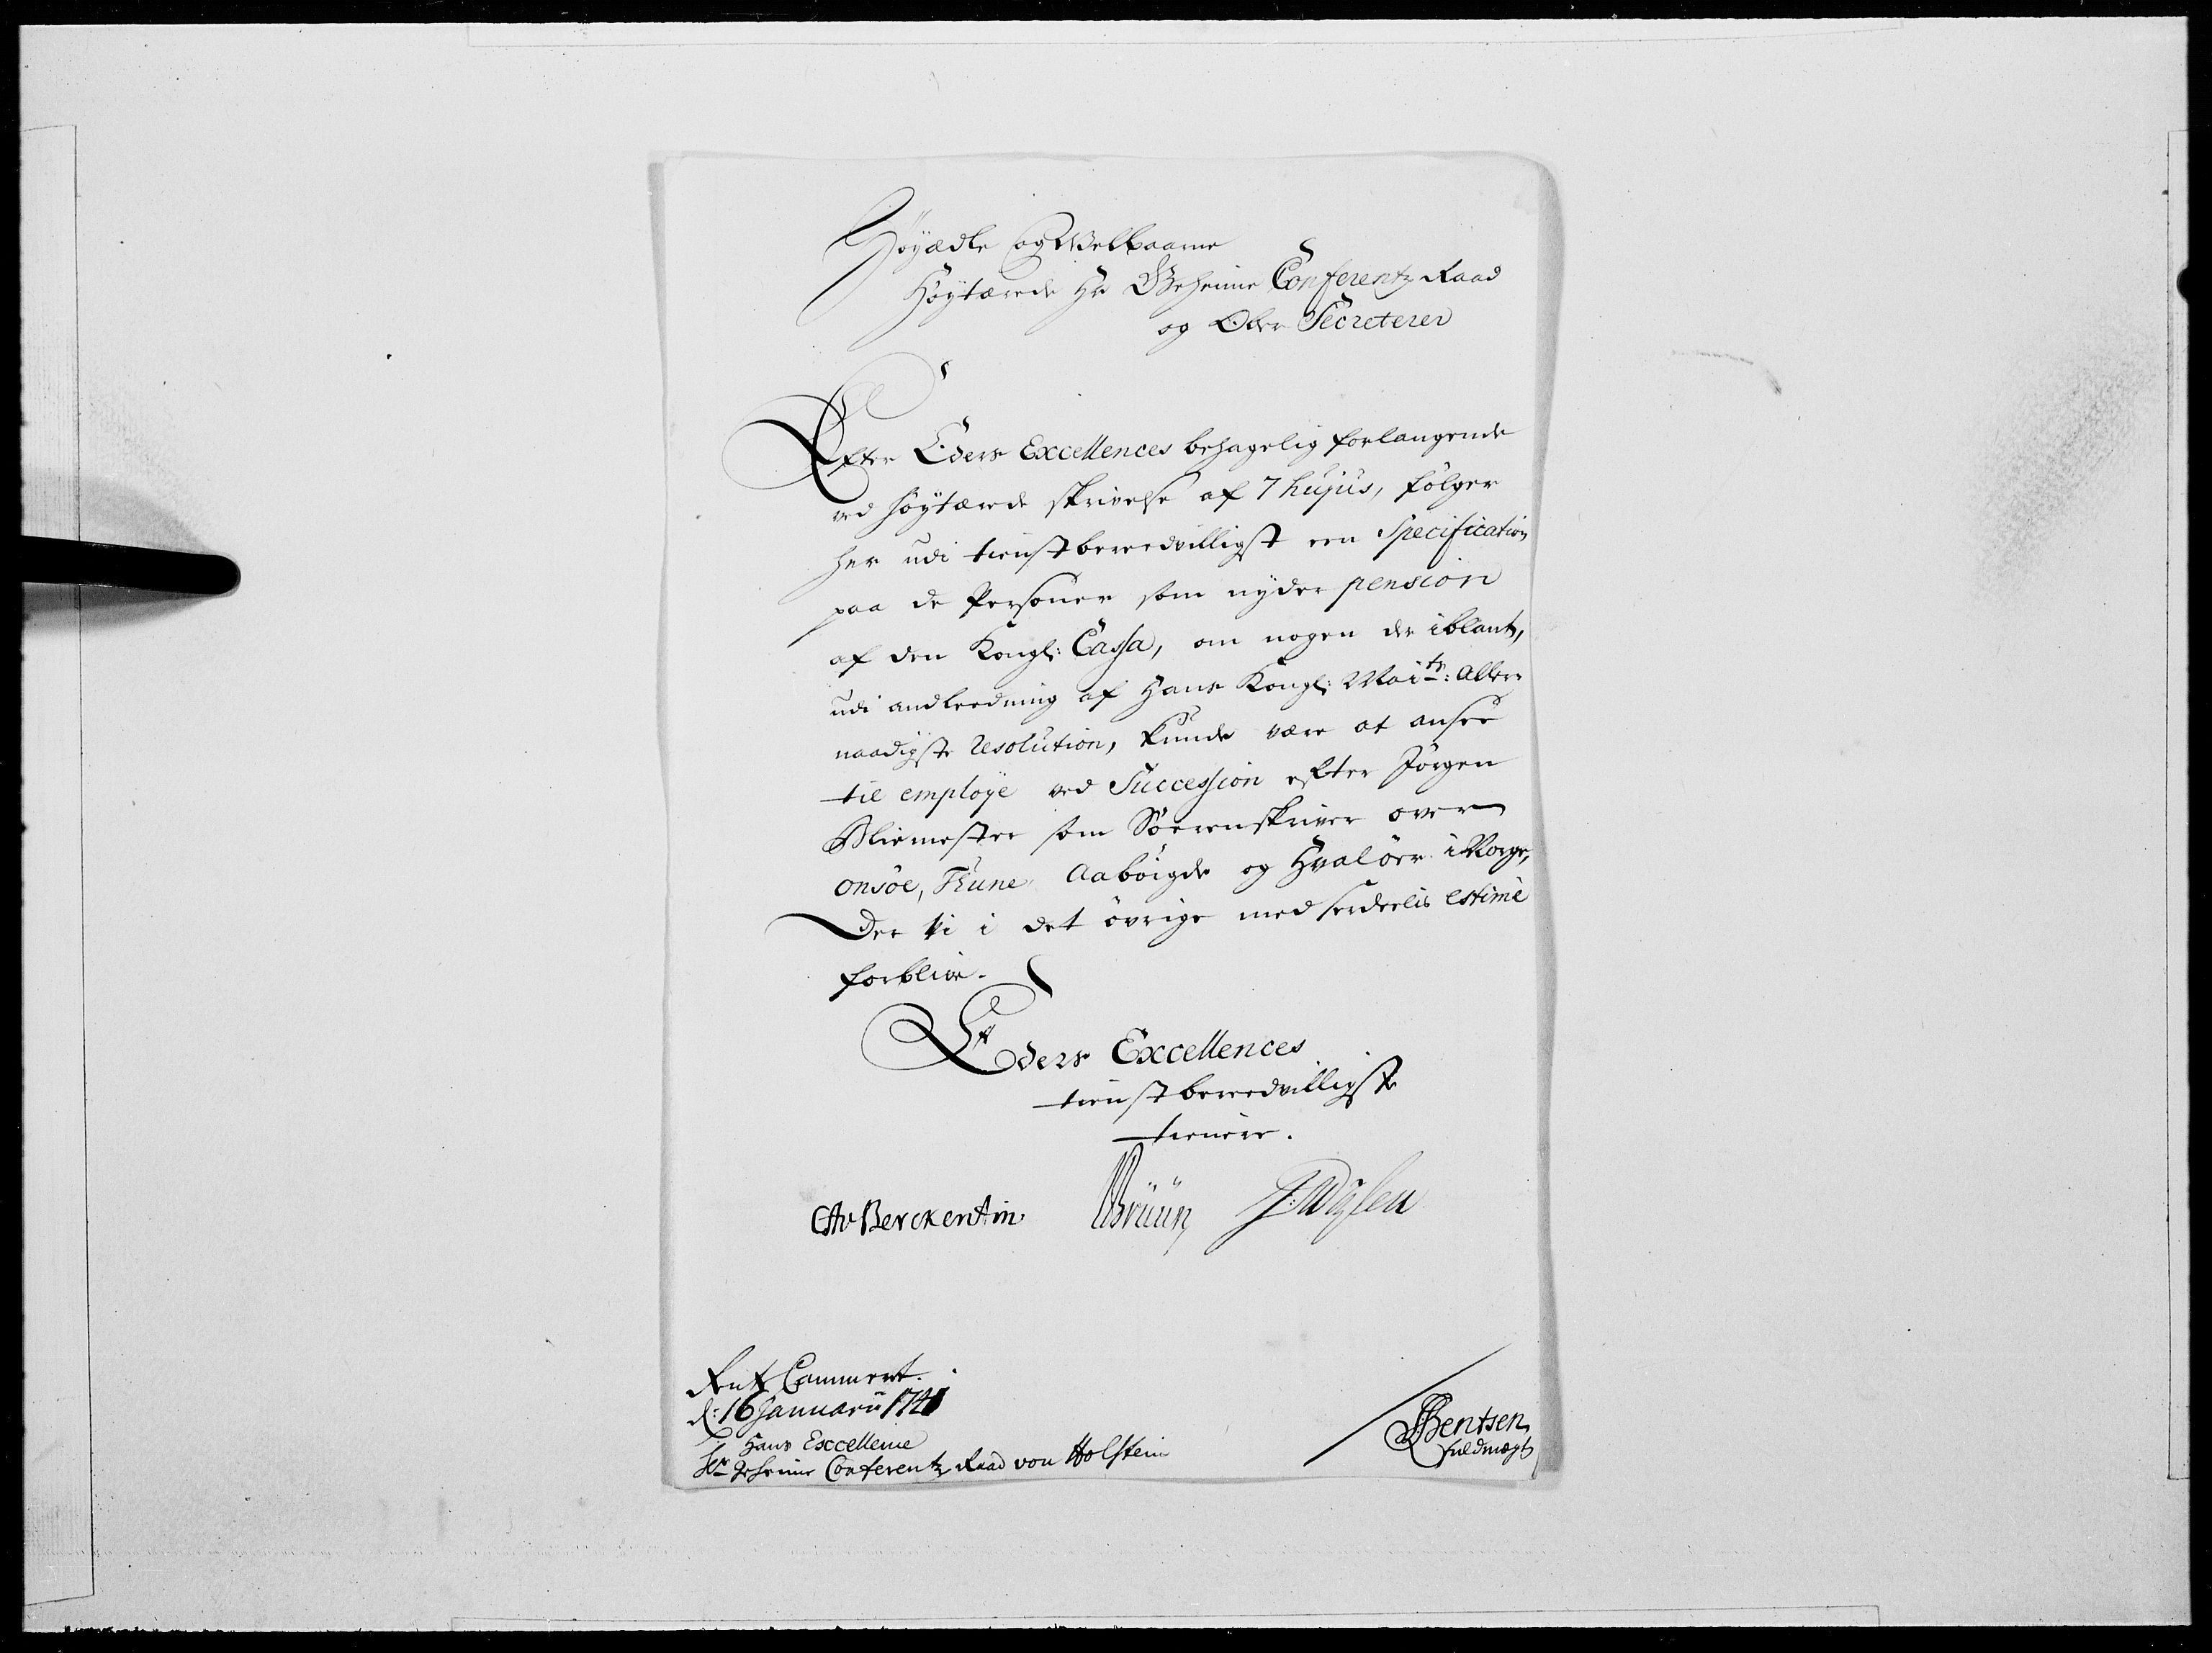 Høyædle og Welbaarne
Høytærede Hr Geheime Conferentz Raad
og Ober Secreterer
Efter Eders Excellences behagelig forlangende
ved høytærede skrivelse af 7 hujus, følger
her udi tienstberredvilligst een Specification
paa de Personer som nyder pension
af den Kongl: Cassa, om nogen der iblant,
udi andleedning af Hans Kongl: Maits: Aller-
naadigste Resolution, kunde være at ansee
til employe ved Succession efter Jørgen
som Sorenskriver over
Onsøe, Thune Aabøigde og Hvaløer i Norge,
Der vi i det øvrige med serdeelis estime
forblive.
Eders Excellences
tienstberredvilligste
tienere.
CAv Berckentin Bruun
Rente Cammeret.
d: 16 Januarii 1741
Hans Excellence
Hr Geheime Conferentz Raad von Holstein
Bentsen
fuldmægt